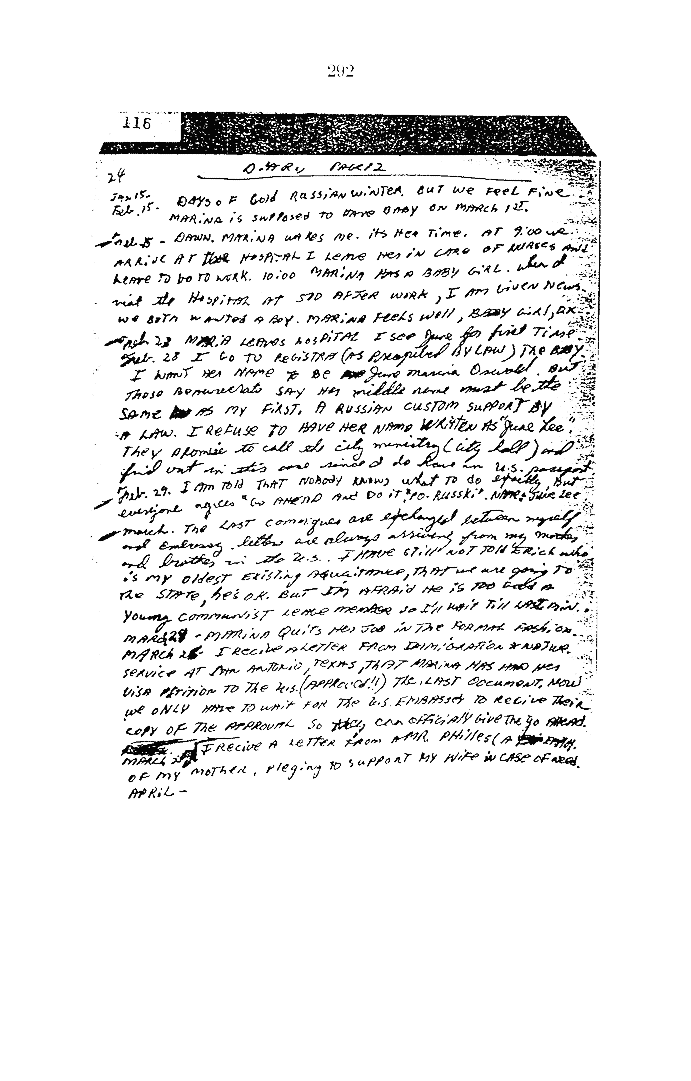 292
116
24 DIARY PAGE 12
Jan 15. - DAYS OF Cold RUSSIAN WINTER. BUT WE FEEL FINE.
Feb. 15 - MARINA is supposed TO HAVE BABY ON MARCH 1st.
Feb. 15 - DAWN. MARINA WAKES me. its Her Time. AT 9:00 we
ARRIVE AT THE HOSPITAL I LEAVE HER IN CARE OF NURSES AND
LEAVE TO GO TO WORK. 10:00 MARINA HAS A BABY GIRL. when I
visit the HOSPITAL AT 500 AFTER WORK, I AM GIVEN NEWS.
WE BOTH WANTED A BOY. MARINA FEELS WELL, BABY GIRL, OK.
Feb. 23 MARIA LEAVES HOSPITAL I SEE June for first Time
Feb. 28 I GO TO REGISTRA (AS prescribed BY LAW) THE BABY
I WANT HER NAME to BE June marina Oswald. BUT
Those Beaurucrats SAY HER middle name must be the
SAME AS MY FIRST. A RUSSIAN CUSTOM SUPPORT BY
A LAW. I REFUSE TO HAVE HER NAME WRITTEN AS "June Lee".
They promise to call the city ministry (city hall) and
find out in this case since I do have an U.S. passport
Feb. 29. I AM TOLD THAT NOBODY KNOWS what to do exactly, But
everyone agrees "Go AHEAD AND DO IT "PO-RUSSKI". NAME: June Lee
march. The LAST comunques are exchanged between myself
and Embassy. letters are always arriving from my mother
and brother in the U.S. I HAVE STILL NOT TOLD ERICH who
is my oldest existing aquaitance, THAT we are going TO
The STATE, he's O.K. BUT I'm AFRAID HE IS TOO Good A
Young COMMUNIST LEAGE MEMBER so I'll WAIT TILL LAST MIN.
MAR 24 - MARINA QUITS HER JOB IN THE FORMAL FASHION.
MARCH 26 I RECIVE A LETTER FROM IMMIGRATION & NATUR.
SERVICE AT SAN ANTONIO, TEXAS, THAT MARINA HAS HAD HER
VISA PETITION TO THE U.S. (APPROVED!!) THE LAST DOCUMENT. NOW
WE ONLY HAVE TO WAIT FOR THE U.S. EMBASSY TO RECIVE THEIR
COPY OF THE APPROVAL SO they can OFFICIALLY GIVE THE go AHEAD.
MARCH 27 I RECIVE A LETTER From A MR. PHILLES (A
OF MY MOTHER, pleging TO SUPPORT MY WIFE IN CASE OF NEED.
APRIL -